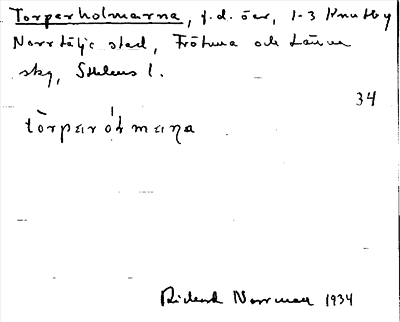 Torperholmarna, f.d. öar, 1-3 Knutby
Norrtälje stad, Frötuna och Länna
skg, Sthlms l.
34
tòrparόlmaṇa
Rickard Norrman 1934